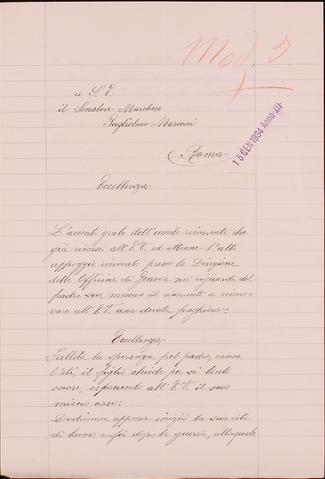 Mod. 5
a S. E.
il Senatore Marchese
Guglielmo Marconi
Roma
16 GEN 1934 Anno XII
Eccellenza
L'accento grato dell'umile ricorrente che
già ricorse all'E.V. ed ottenne l'alto
appoggio invocato presso la Direzione
delle Officine di Genova nei riguardi del
padre suo, muove il ricorrente a rinno-
vare all'E.V. una devota preghiera:
Eccellenza
Fallita la speranza pel padre, causa
l'età, il figlio chiede per sé tanto
onore, esponendo all'E.V. il suo
misero caso:
Dodicenne appena iniziò la sua vita
di lavoro e fu dopo la guerra, allorquando